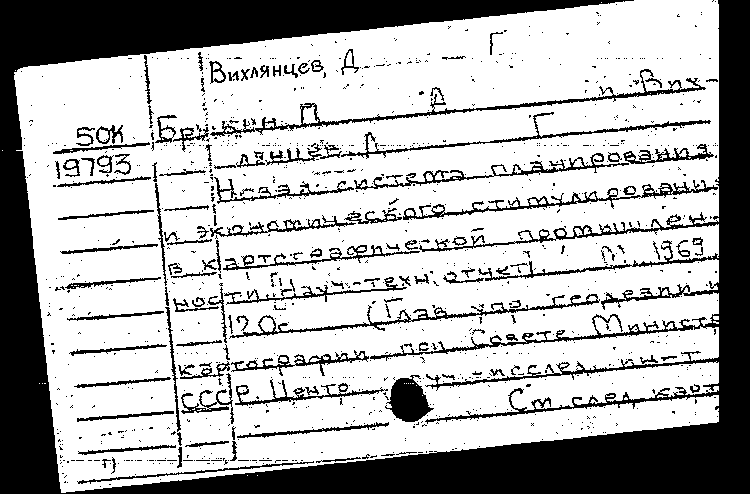 Вихлянцев, Д Г
50К Брукин П А и Вих-
19793 лянцев Д Г
Новая система планирования
и экономического стимулирования
в картографической промышлен-
ности. [Науч-техн. отчет]. М. 1969
120с (Глав упр. геодезии и
картографии при Совете Министр
СССР. Центр науч-исслед. ин-т
См след карт